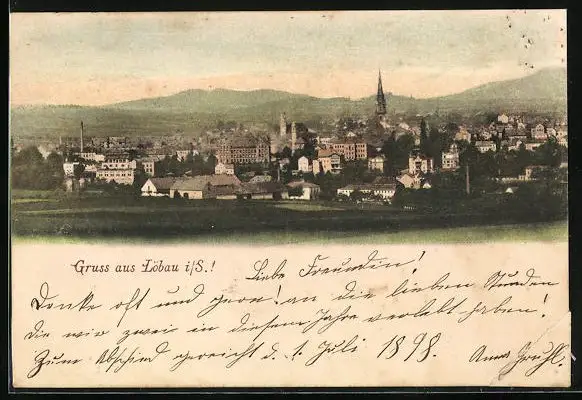 Gruss aus Löbau i/S.!
Liebe Freundin!
Denke oft und gern! an die lieben Stunden
die wir zwei in diesem Jahre verlebt haben!
Zum Abschied gereicht d. 1 Juli 1898. Anna